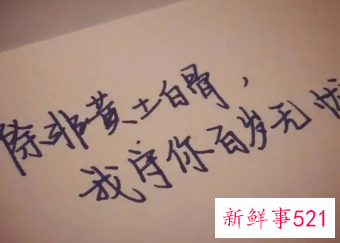 除非黄土白骨，
我守你百岁无忧
新鲜事521